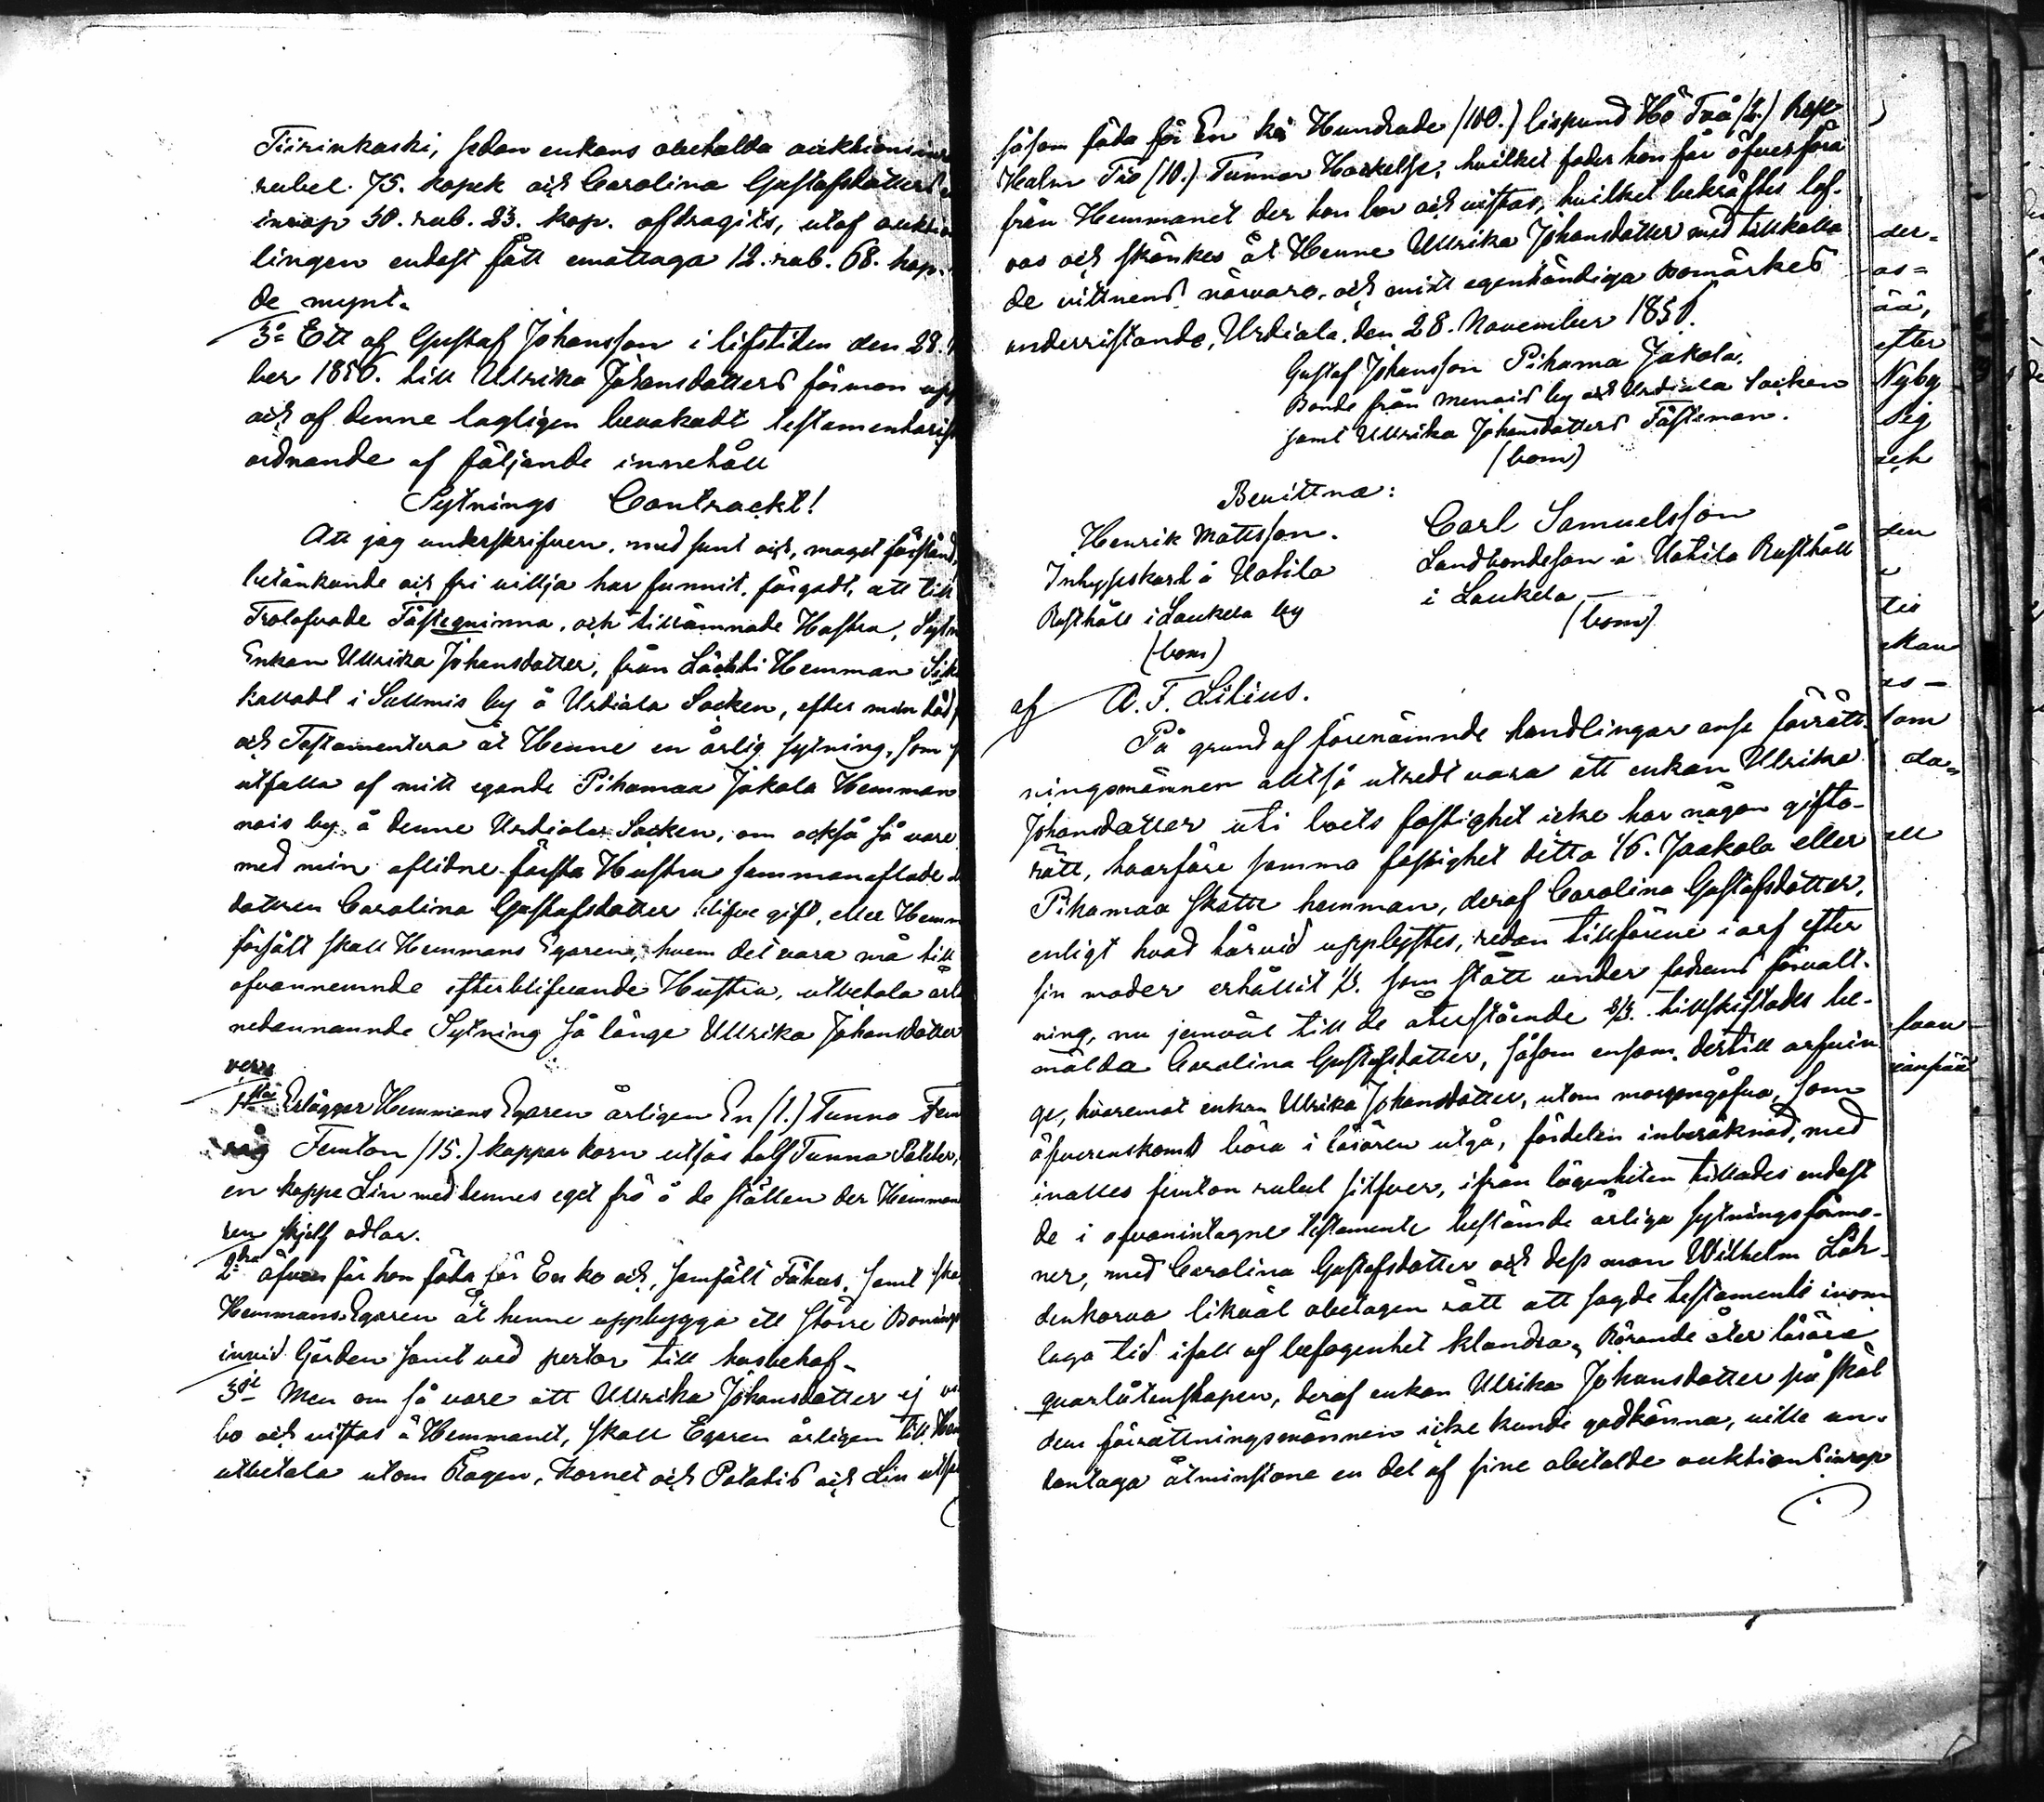 Tiirinkoski, sedan enkans obetalda auktions
rubel 75. kopek och Carolina Gustafsdotters
inrop 30. rub. 23. kop. afdragits, utaf auktio
lingen endast fått emottaga 12. rub. 68. kop.
de mynt.
3o Ett af Gustaf Johansson i lifstiden den 28.
ber 1850. till Ulrika Johansdotters förmon upp
och af denne lagligen bevakadt testamentarisk
ordnande af följande innehåll
Sytnings Contrackt!
Att jag underskrifven, med sunt och, moget förstånd,
betänkande och fri villja har funnit, för godt, att till
Trolofvade Fästeqvinna, och tillämnade Hustru, Sytn
Enkan Ullrika Johansdotter, från Lächti Hemman
kalladt i Sallmis by å Urdiala Socken, efter min död
och Testamentera åt Henne en årlig sytning, som
utfalla af mitt egande Pihamaa Jakola Hemman
nais by å denne Urdiala Socken, om också så vore
med min aflidne första Hustru sammanaflade
dottren Carolina Gustafsdotter blifve gift, eller Hemm
försålt skall Hemmans Egaren, hvem det vara må till
ofvannemnde efterblifvande Hustru, utbetala årl
nedannamnde Sytning så länge Ullrika Johansdotter
1sta Erlägger Hemmans Egaren årligen En (1.) Tunna Fem
råg Femton (15.) kappar korn utsås half Tunna Potater,
en kappe Lin med hennes eget frö å de ställen der Hemman
ren sjelf odlar.
2dra åfven får hon föda för En ko och, samfält Fähus, samt ska
Hemmans Egaren åt henne uppbygga ett större Bonings
invid Gården samt ved pertor till husbehof.
3je Men om så vore att Ullrika Johansdotter ej
bo och vistas å Hemmanet, skall Egaren årligen till Hen
utbetala utom Rågen, Kornet och Potatis och Lin
såsom föda för En ko Hundrade (100.) lispund Hö Två (2.)
Halm Tio (10.) Tunnor Hackelse, hvilket foder hon får öfverföra
från Hemmanet der hon bor och vistas, hvilket bekräftes lof-
vas och skänkes åt Henne Ullrika Johansdotter med tillkalla
de vittnens närvaro, och mitt egenhändiga bomärkes
underristande, Urdiala den 28. November 1850.
Gustaf Johansson Pihama Jakola.
Bonde från Menais by och Urdiala Socken
samt Ullrika Johansdotters Fästeman.
(bom)
Bevittna:
Henrik Mattsson.
Inhyseskarl å Uotila
Rusthåll i Laukela by
(bom)
Carl Samuelsson
Landbondeson å Uotila Rusthåll
i Laukela
(bom)
af A. F. Lilius.
På grund af förenämnde handlingar anse förrätt-
ningsmännen altså utredt vara att enkan Ulrika
Johansdotter uti boets fastighet icke har någon gifto-
rätt, hvarföre samma fastighet ditto 1/6. Jaakola eller
Pihamaa Skatte hemman, deraf Carolina Gustafsdotter,
enligt hvad härvid upplystes, redan tillförene i arf efter
sin moder erhållit 1/3. som stått under fadrens förvalt-
ning, nu jemväl till de återstående 2/3. tillskiftades be-
mälda Carolina Gustafsdotter, såsom ensam dertill arfvin
ge, hvaremot enkan Ulrika Johansdotter, utom morgongåfva, som
öfverenskoms böra i lösören utgå, fördelen inberäknad, med
inalles femton rubel silfver, ifrån lägenheten tillades endast
de i ofvanintagne testamente bestämde årliga sytningsförmo-
ner, med Carolina Gustafsdotter och dess man Wilhelm Läh-
denkorva likväl obetagen rätt att sagde testamente inom
laga tid ifall af befogenhet klandra. Rörande åter lösöre
qvarlåtenskapen, deraf enkan Ulrika Johansdotter på skäl
dem förrättningsmännen icke kunde godkänna, ville un-
dantaga åtminstone en del af sine obetalde auktions inrop
der-
as=
ää,
efter
Nyby
Sig
och
den
tio
as-
som
da=